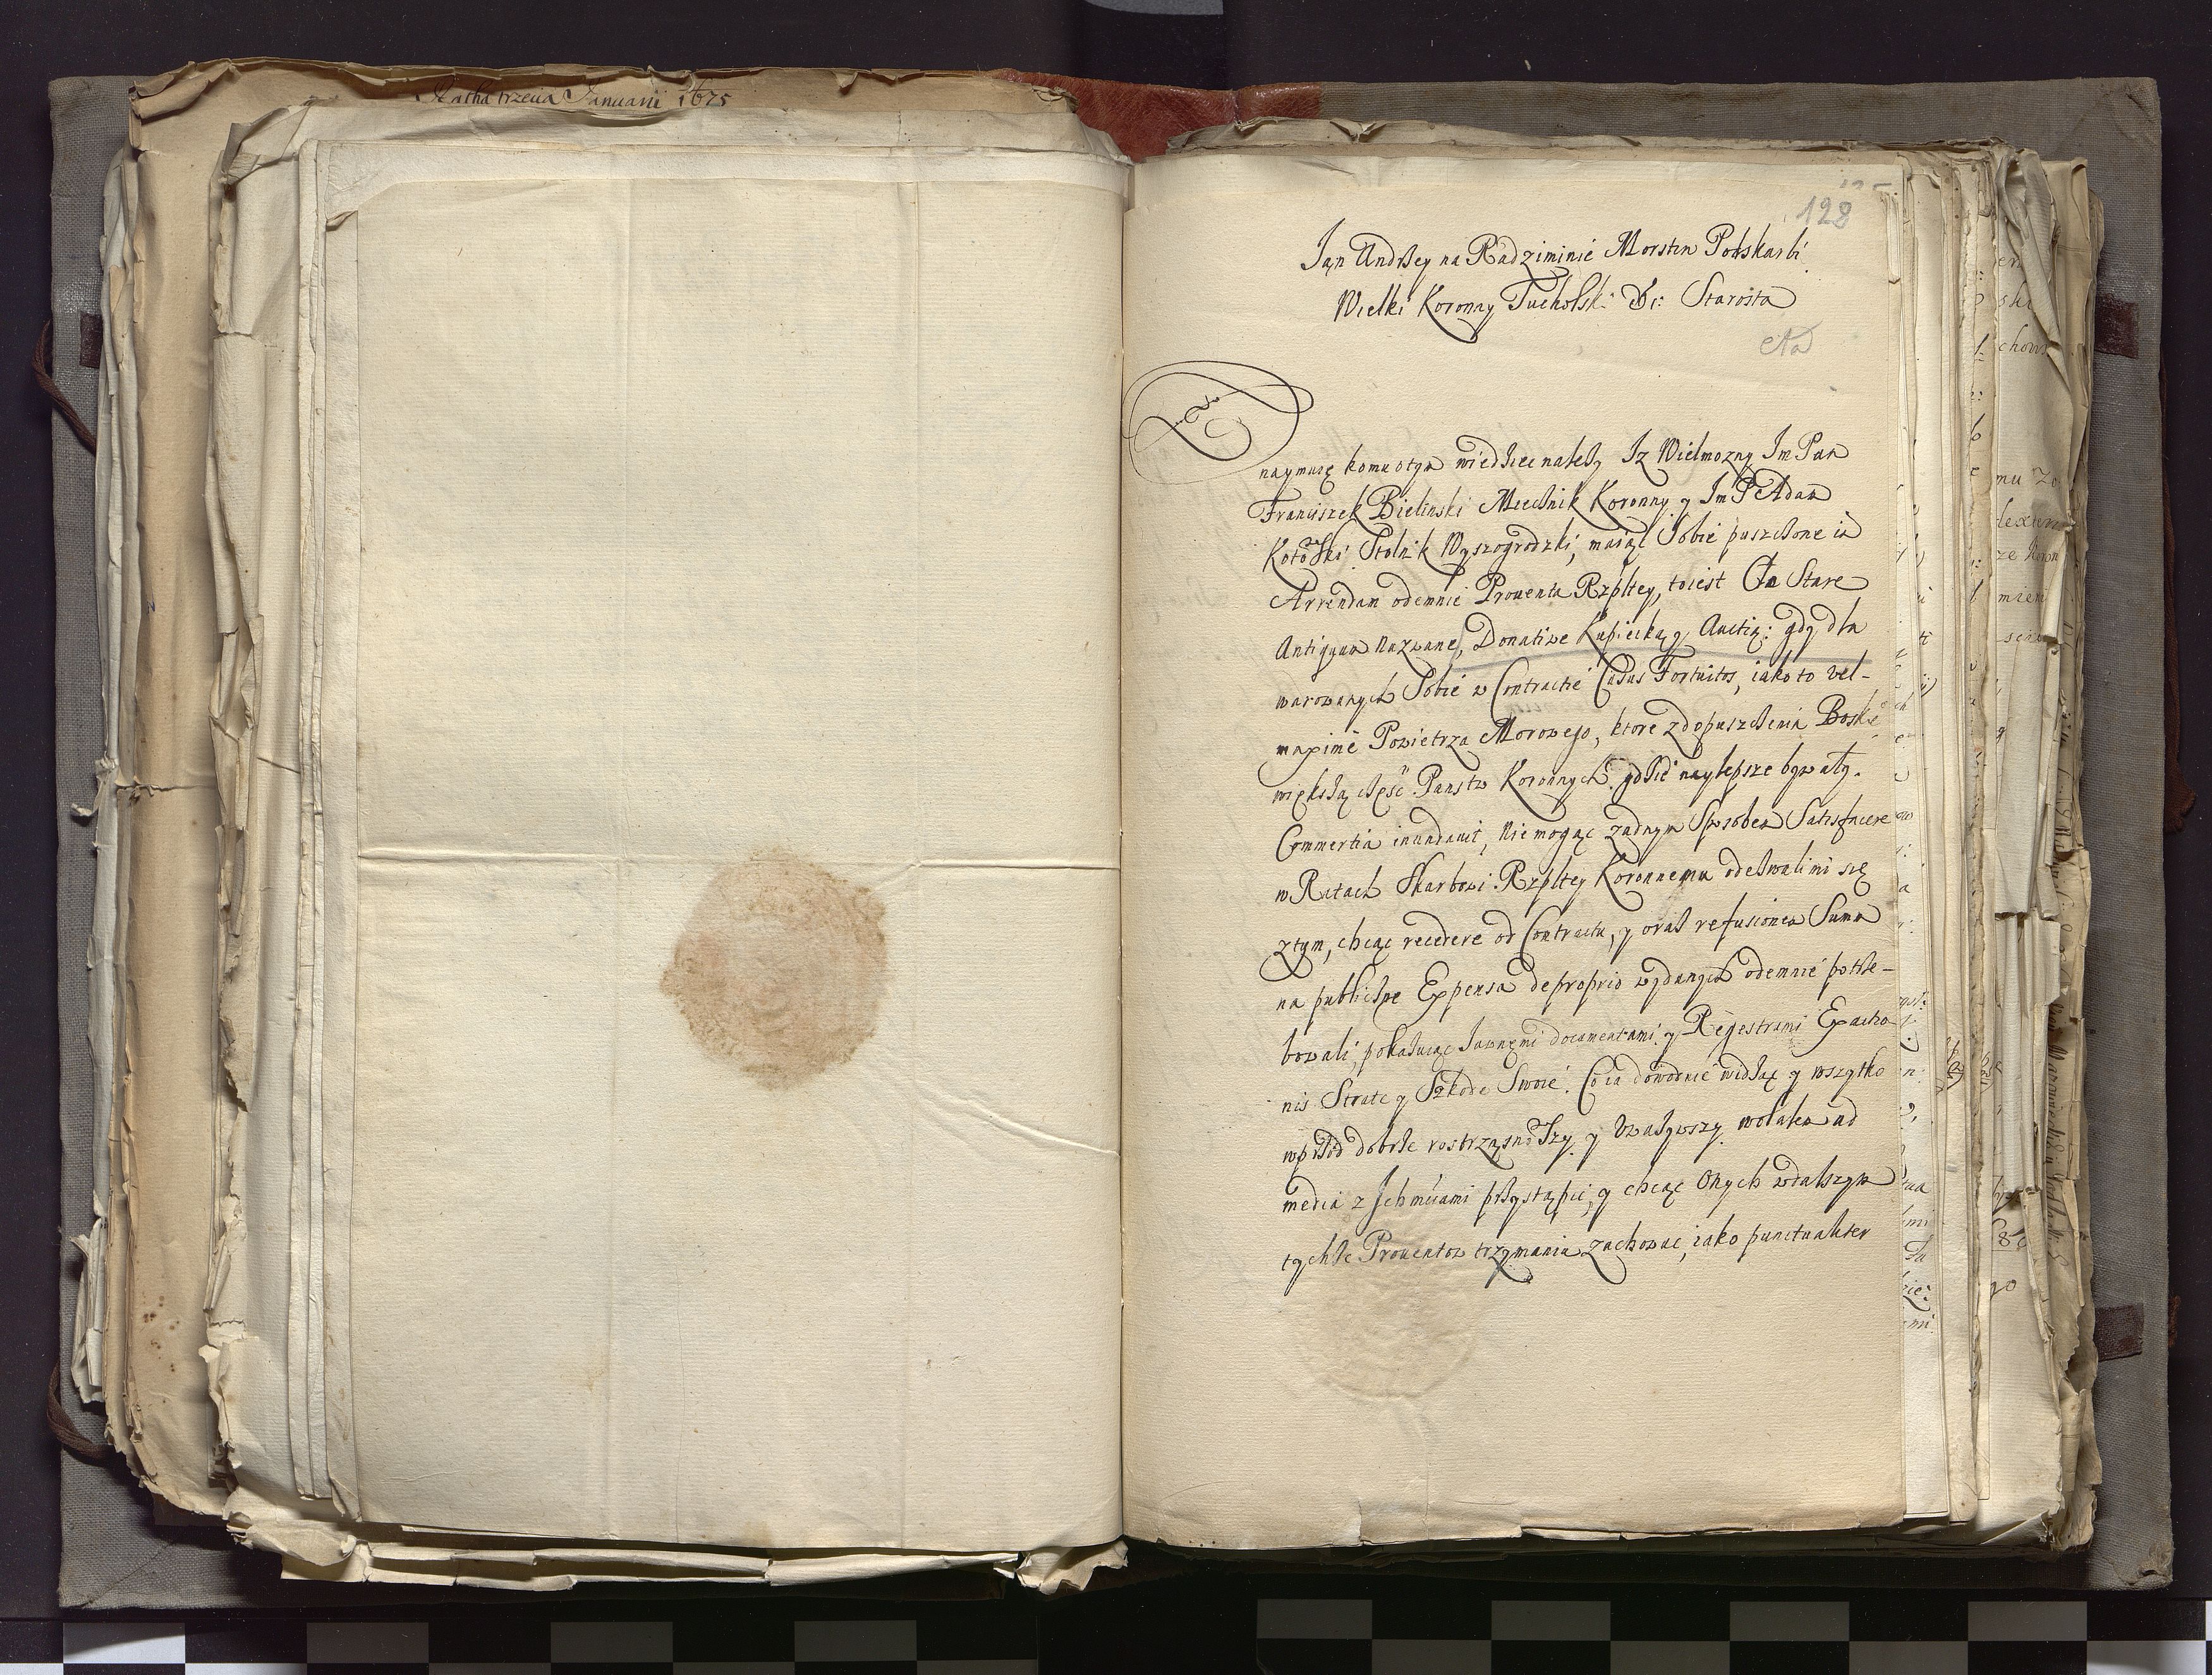 Ratha trzecia Januarii 1675
128
Jan Andrzey na Radziminie Morstin Potskarbi
Wielki Koronny Tucholsk: &c: Starosta
Cła
naymuię komu o tym wiedziec nalezy Iz Wielmozny Im Pan
Franciszek Bielinski Miecznik Koronny y Im P Adam
Kotowski Stolnik Wyszogrodzki, maiąc Sobie puszczone in
Arrendam odemnie Prouenta Rzpltey, to iest Cła Stare
Antiquum Nazwane, Donatiwe Kupiecką y Auctią: gdy dla
warowanych Sobie w Contractie Casus Fortuitos, iako to vel-
maxime Powietrza Morowego, ktore z dopuszczenia Boskie
większą część Panstw Koronnych gdzie naylepsze bywały.
Commertia inundavit, Nie mogąc zadnym Sposobem Satisfacere
w Ratach Skarbowi Rzpltey Koronnemu odezwali mi się
z tym, chcąc recedere od Contractu, y oraz refusionem Summ
na publiczne Expensa de proprio wydanych odemnie potrze-
bowali, pokazuiąc Jawnemi documentami y Regestrami Exactio-
nis Strate y Szkode Swoie. Co ia dowodnie widząc y wszytko
wprzod dobrze rostrząsnowszy y Uwazywszy wolałem ad
media z Ichmciami przystąpic, y chcąc Onych w dalszym
tychze Prouentow trzymaniu zachowac, iako punctualiter